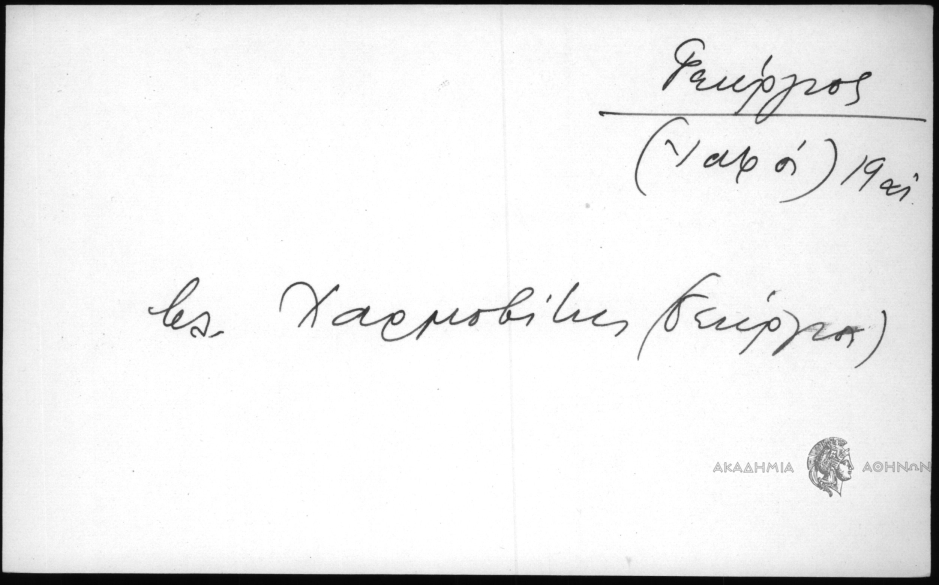 Γεώργιος
(Ιατροί) 19 αι.
βλ. Χαρμοβίτης (Γεώργιος)
ΑΚΑΔΗΜΙΑ ΑΘΗΝΩΝ